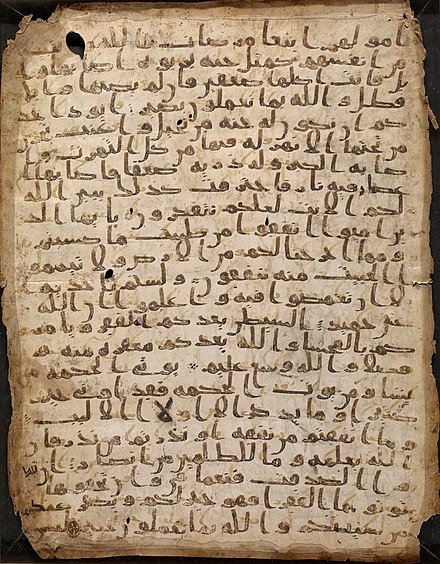 ا مولهم ابتغا مرضات الله وتثبيتا
من انفسهم كمثل جنه بربوه اصابها وا
بل فاتت اكلها ضعفين فان لم يصبها وابل
فطل والله بما تعملون بصير ايود احد
كم ان تكون له جنه من نخيل واعنب تجري
من تحتها الانهر له فيها من كل الثمرت و
اصابه الكبر وله ذريه ضعفا فاصابها
اعصار فيه نار فاحترقت كذلك يبين الله
لكم الايت لعلكم تتفكرون يايها الذ
ين امنوا انفقوا من طيبت ما كسبتم
ومما اخرجنا لكم من الارض ولا تيمموا
الخبيث منه تنفقون ولستم باخذيه
الا ان تغمضوا فيه واعلموا ان الله
غني حميد الشيطن يعدكم الفقر ويامر
كم بالفحشا والله يعدكم مغفره منه و
فضلا والله وسع عليم يوتي الحكمه من
يشا ومن يوت الحكمه فقد اوتي خيرا
كثيرا وما يذكر الا اولوا الالبب
وما انفقتم من نفقه او نذرتم من نذر فان
الله يعلمه وما للظلمين من انصار ان
تبدوا الصدقت فنعما هي وان تخفوها و
توتوها الفقرا فهو خير لكم ويكفر عنكم
من سيتكم والله بما تعملون خبير ليس